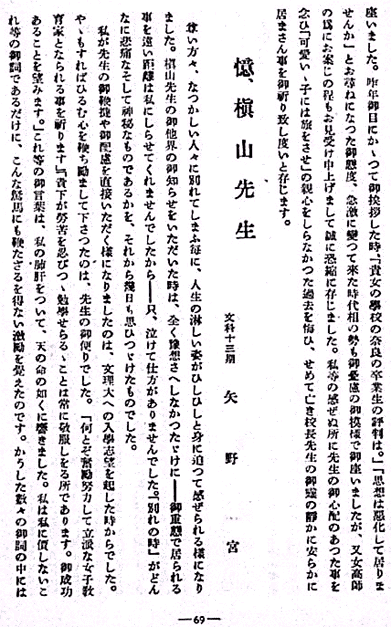 座いました。昨年御目にかゝつて御挨拶した時『貴女の學校の奈良の卒業生の評判は。』『思想は惡化して居りま
せんか』とお尋ねになつた御態度、急激に變つて來た時代相の勢も御憂慮の御模樣で御座いましたが、又女高師
の爲にお案じの程もお見受け申上げまして誠に恐縮に存じました。私等の感ぜぬ所に先生の御心配のあつた事を
念ひ『可愛いゝ子には旅をさせ』の親心をしらなかつた過去を悔ひ、せめて亡き校長先生の御靈の靜かに安らかに
居まさん事を御祈り致し度いと存じます。
憶、槇山先生
文科十三期 矢野 宮
尊い方々、なつかしい人々に別れてしまふ每に、人生の淋しい姿がひしひしと身に迫つて感ぜられる樣になり
ました。槇山先生の御他界の御知らせをいただいた時は、全く豫想さへしなかつたゞけに――御重態で居られる
事を遠い距離は私にしらせてくれませんでしたから――只、泣けて仕方がありませんでした。『別れの時』がどん
なに悲痛なそして神秘なものであるかを、それから幾日も思ひつゞけたものでした。
私が先生の御鞭撻や御配慮を直接いただく樣になりましたのは、文理大への入學志望を起した時からでした。
やゝもすればひるむ心を鞭ち勵まして下さつたのは、先生の御便りでした。『何とぞ奮勵努力して立派な女子敎
育家となられる事を祈ります』『貴下が勞苦を忍びつゝ勉學せらるゝことは常に敬服しをる所であります。御成功
あることを望みます。』これ等の御言葉は、私の肺肝をついて、天の命の如くに響きました。私は私に價しないこ
れ等の御詞であるだけに、こんな駑馬にも鞭たざるを得ない激勵を覺えたのです。かうした數々の御詞の中には
―69―